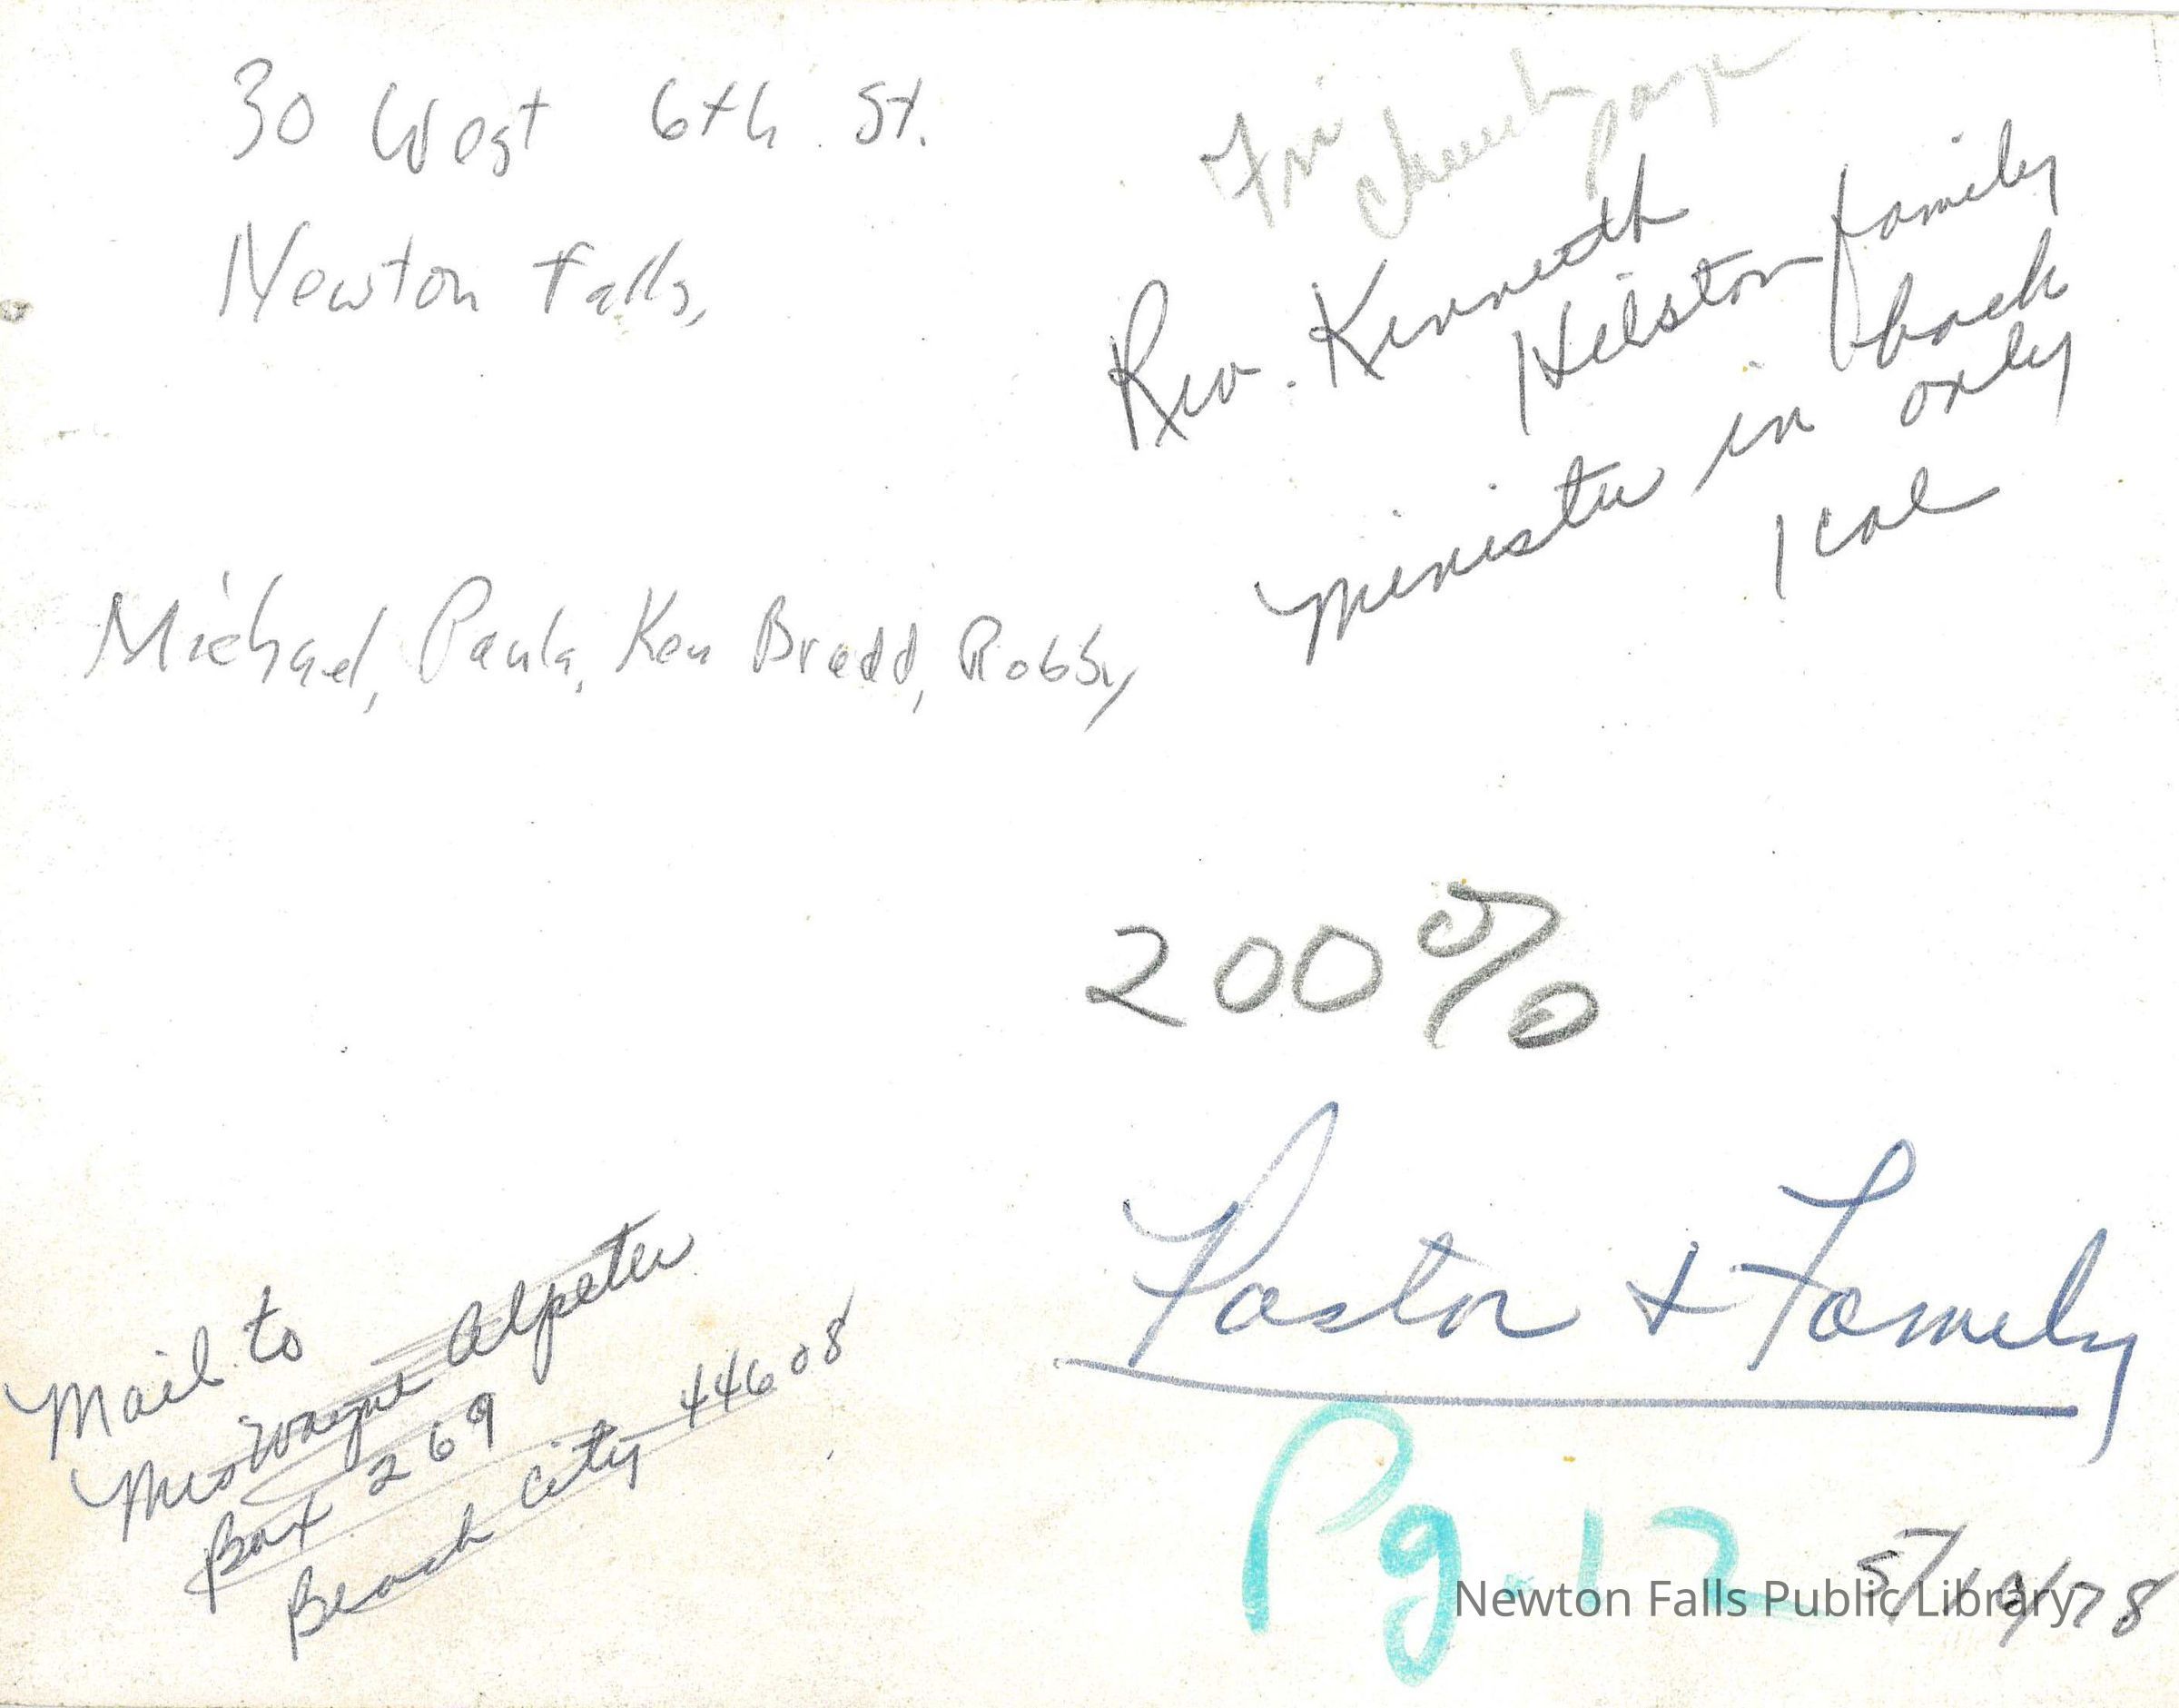 30 West 6th St.
Newton Falls,
Fri
church page
Rev. Kenneth
Hilston family
minister in back
only
1 col
Michael, Paula, Ken Bradd, Robby
200%
Pastor + Family
Pg. 12
Mail to
Mrs Wayne Alpeter
Box 269
Beach City 44608
Newton Falls Public Library